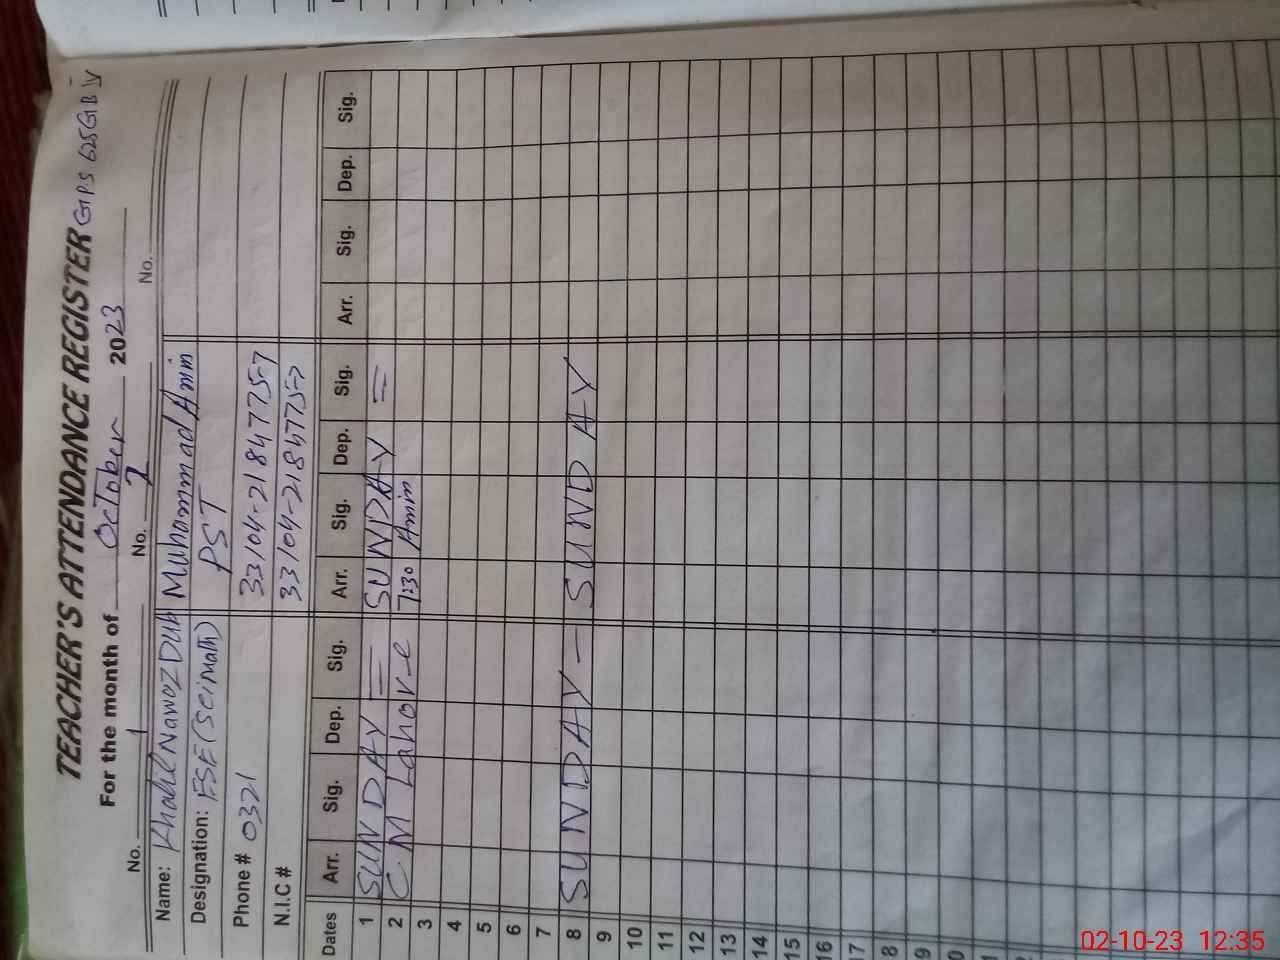 TEACHER'S ATTENDANCE REGISTER GPS 625GB IV
For the month of October 2023
No. 1 No. 2 No.
Name: Khalil Nawaz Muhammad Amin
Designation: ESE (Sci Math) PST
Phone # 0321 33104-2184775-7
N.I.C # 33104-2184775-7
Dates Arr. Sig. Dep. Sig. Arr. Sig. Dep. Sig. Arr. Sig. Dep. Sig.
1 SUNDAY = SUNDAY =
2 CM Lahore 7:30 Amin
3
4
5
6
7
8 SUNDAY - SUNDAY
9
10
11
12
13
14
15
16
17
8
9
0
1
02-10-23 12:35